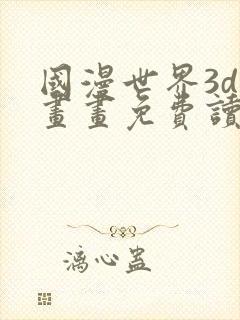 國漫世界3d
畫畫免費讀
漓心蠱